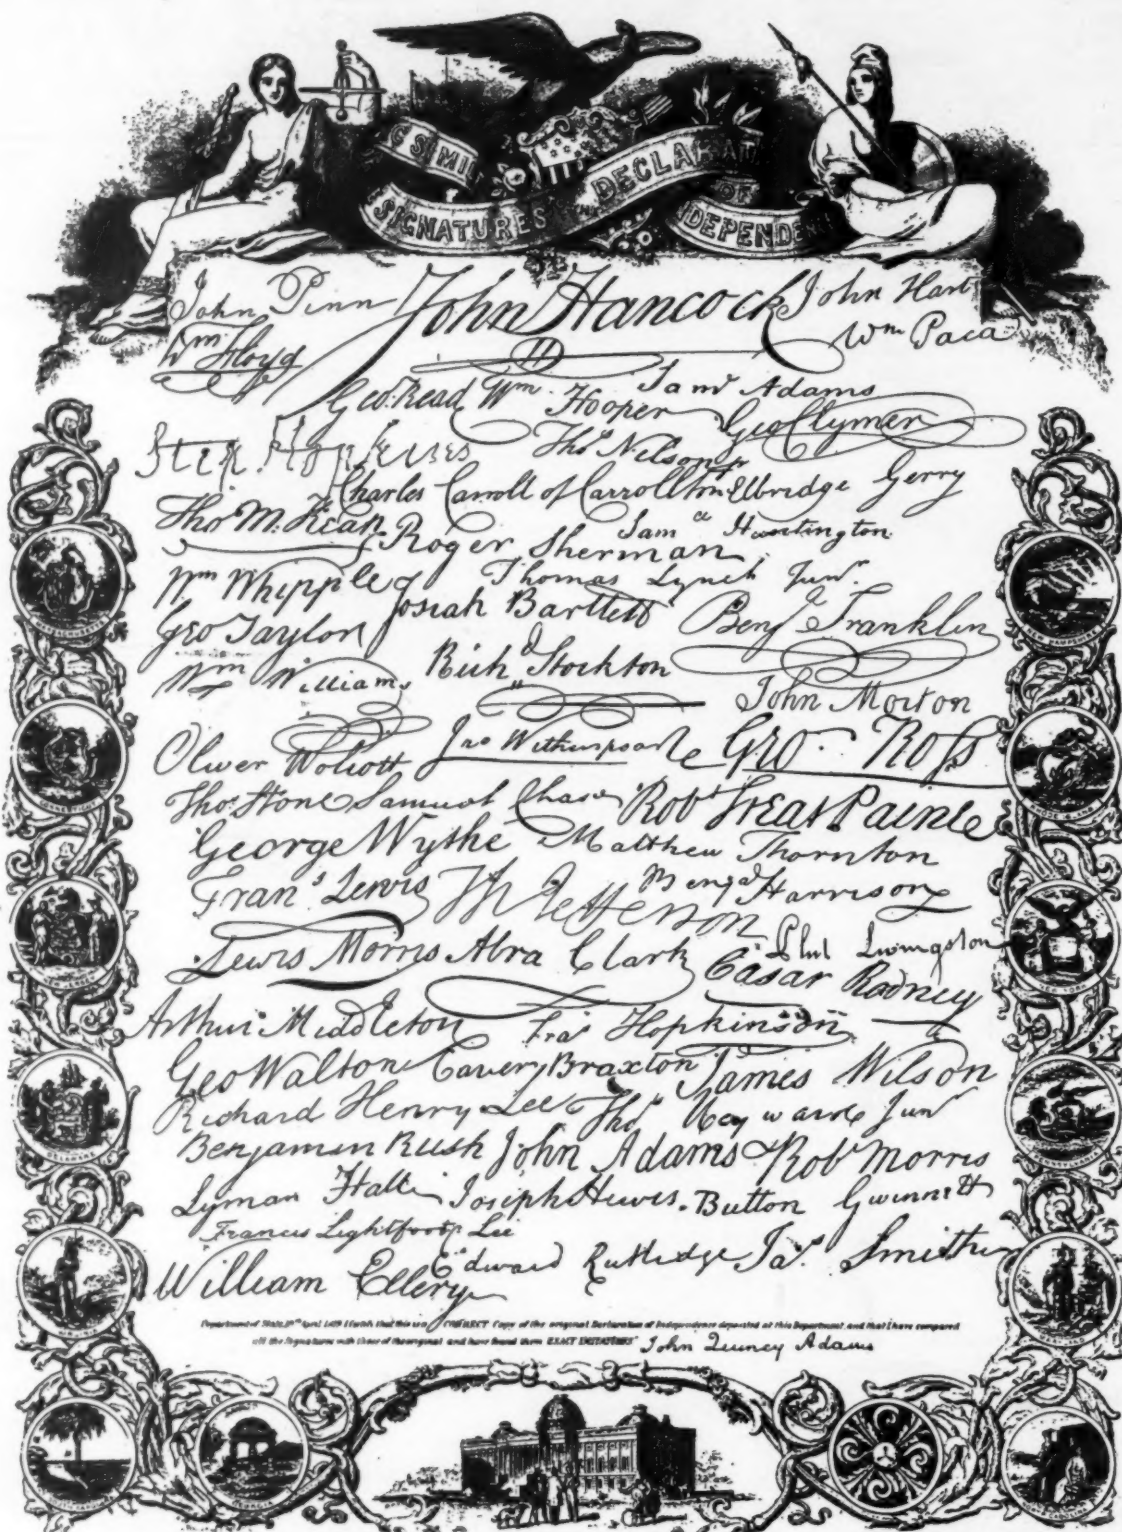 FAC SIMILE
SIGNATURES TO THE DECLARATION
OF
INDEPENDENCE
John Penn John Hancock John Hart
Wm Floyd Wm Paca
Geo. Read Wm. Hooper Saml Adams
Geo Clymer
Step. Hopkins Thos Nelson jr
Charles Carroll of Carrollton Elbridge Gerry
Tho M. Kean Roger Sherman Saml Huntington
Wm Whipple Thomas Lynch Junr.
Josiah Bartlett Benj Franklin
Geo Taylor
Wm Williams Richd Stockton
John Morton
Oliver Wolcott Jno Witherspoon Geo. Ross
Thos. Stone Samuel Chase Robt Treat Paine
George Wythe Matthew Thornton
Frans. Lewis Th Jefferson Benja Harrison
Lewis Morris Abra Clark Phil Livingston
Cæsar Rodney
Arthur Middleton Fras Hopkinson
Geo Walton Carter Braxton James Wilson
Richard Henry Lee Thos Heyward Junr
Benjamin Rush John Adams Robt Morris
Lyman Hall Joseph Hewes. Button Gwinnett
Francis Lightfoot Lee
William Ellery Edward Rutledge Jas. Smith
Department of State, 19th April 1819 I Certify that this is a CORRECT Copy of the original Declaration of Independence deposited at this Department, and that I have compared
all the Signatures with those of the original and have found them EXACT IMITATIONS John Quincy Adams
MASSACHUSETTS
NEW HAMPSHIRE
CONNECTICUT
RHODE ISLAND
NEW JERSEY
NEW YORK
DELAWARE
PENNSYLVANIA
VIRGINIA
MARYLAND
SOUTH CAROLINA
GEORGIA
NORTH CAROLINA